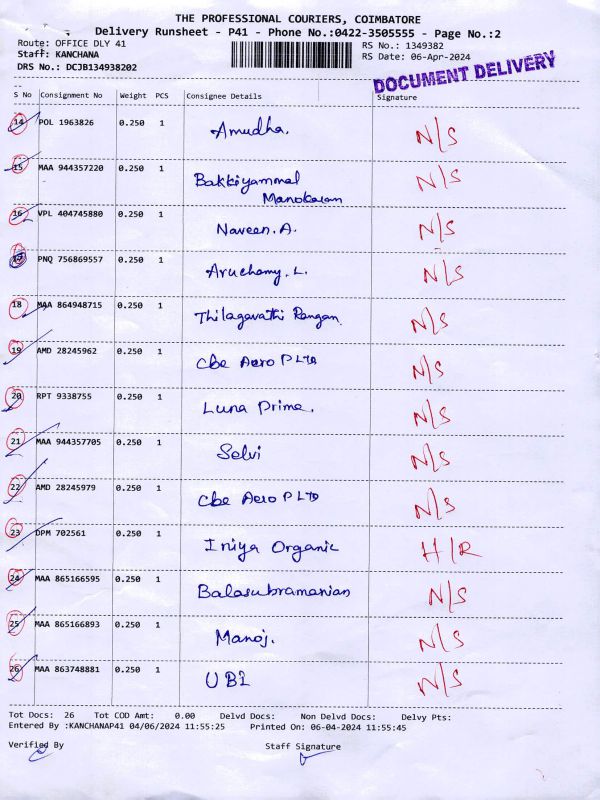 THE PROFESSIONAL COURIERS, COIMBATORE
Delivery Runsheet - P41 - Phone No.:0422-3505555 - Page No.:2
Route: OFFICE DLY 41
RS No.: 1349382
Staff: KANCHANA
RS Date: 06-Apr-2024
DRS No.: DCJB134938202
DOCUMENT DELIVERY
S No Consignment No Weight PCS Consignee Details Signature
14 POL 1963826 0.250 1 Amudha. N/S
15 MAA 944357220 0.250 1 Bakkiyammal N/S
Manokaran
16 VPL 404745880 0.250 1 Naveen.A. N/S
PNQ 756869557 0.250 1 Aruchamy.L. N/S
18 MAA 864948715 0.250 1 Thilagavathi Rangan N/S
19 AMD 28245962 0.250 1 Cbe Aero P LTD N/S
20 RPT 9338755 0.250 1 Luna Prime. N/S
21 MAA 944357705 0.250 1 Selvi N/S
22 AMD 28245979 0.250 1 Cbe Aero P LTD N/S
23 DPM 702561 0.250 1 Iniya Organic H/R
24 MAA 865166595 0.250 1 Balasubramanian N/S
25 MAA 865166893 0.250 1 Manoj. N/S
26 MAA 863748881 0.250 1 UBI N/S
Tot Docs: 26 Tot COD Amt: 0.00 Delvd Docs: Non Delvd Docs: Delvy Pts:
Entered By :KANCHANAP41 04/06/2024 11:55:25 Printed On: 06-04-2024 11:55:45
Verified By Staff Signature